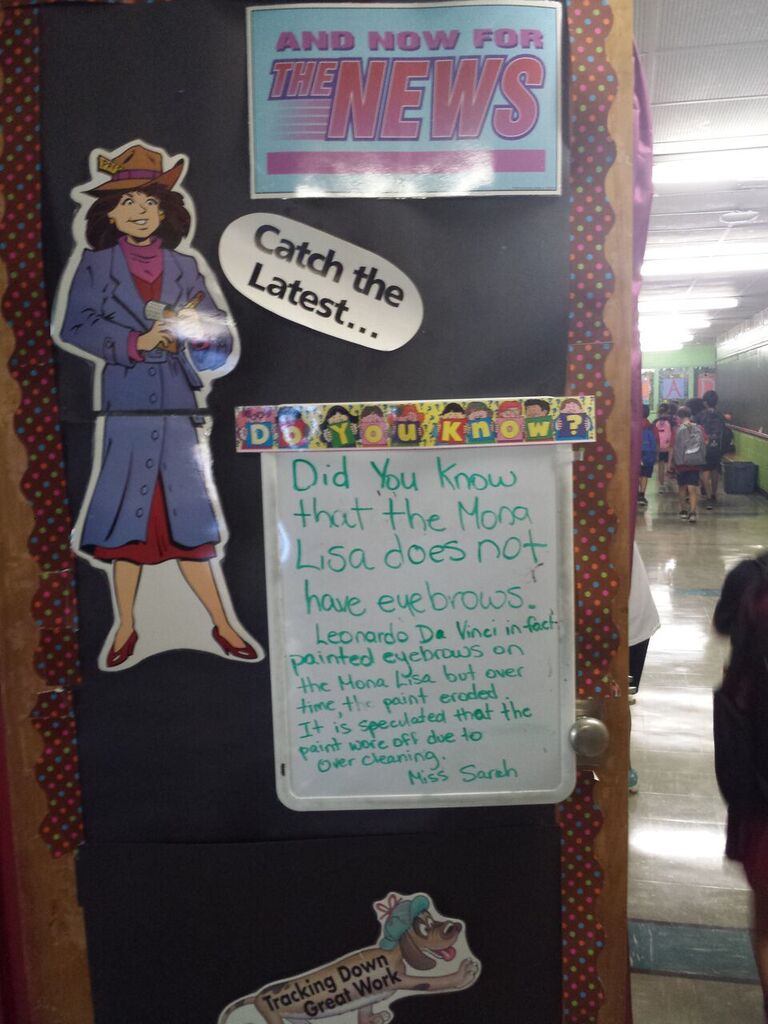 AND NOW FOR
THE NEWS
Catch the
Latest...
Do You Know?
Did You Know
that the Mona
Lisa does not
have eyebrows.
Leonardo Da Vinci in fact
painted eyebrows on
the Mona Lisa but over
time, the paint eroded.
It is speculated that the
paint wore off due to
over cleaning.
Miss Sarah
Tracking Down
Great Work